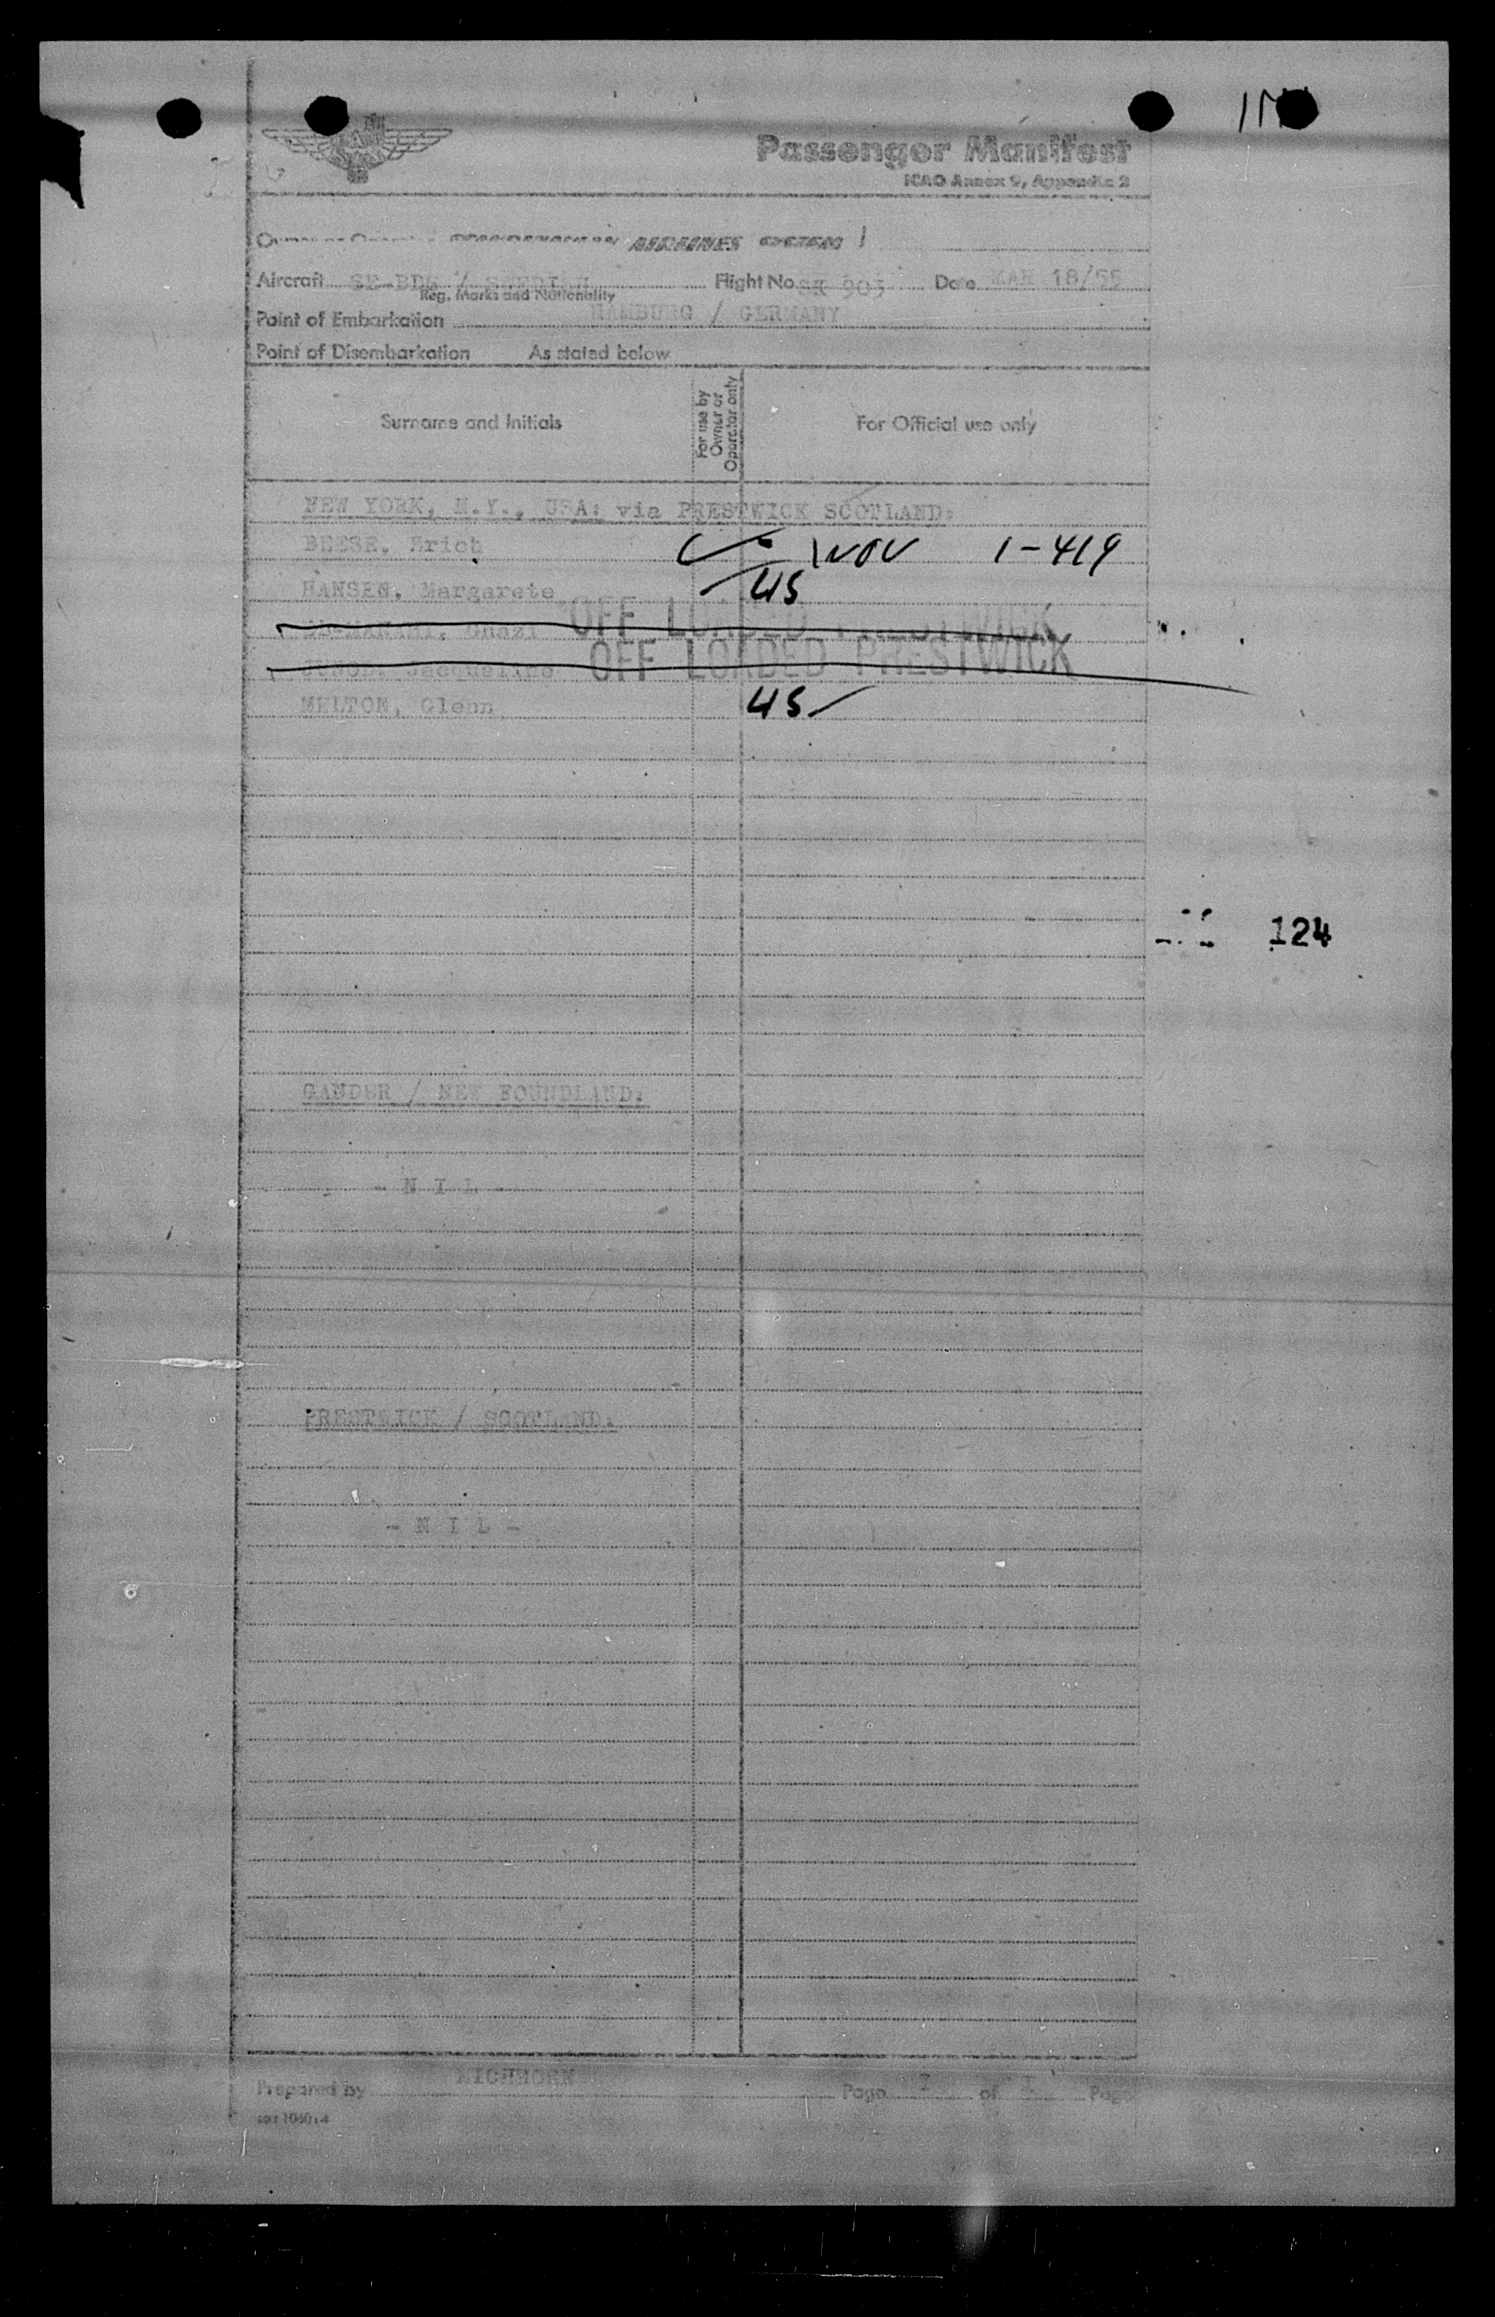 Passenger Manifest
ICAO Annex 9, Appendix 2
AIRLINES SYSTEM
Aircraft SE-BDM / SWEDISH Flight No. SK 903 Date MAR 18/55
Reg. Marks and Nationality
Point of Embarkation HAMBURG / GERMANY
Point of Disembarkation As stated below
Surname and Initials
For use by Owner or Operator only
For Official use only
NEW YORK, N.Y., USA: via PRESTWICK SCOTLAND:
BEESE, Erich 1-419
HANSEN, Margarete US
Ghazi OFF LOADED PRESTWICK
Jacqueline OFF LOADED PRESTWICK
MELTON, Glenn US
124
GANDER / NEW FOUNDLAND:
- N I L -
PRESTWICK / SCOTLAND:
- N I L -
Prepared by EICHHORN Page of Page